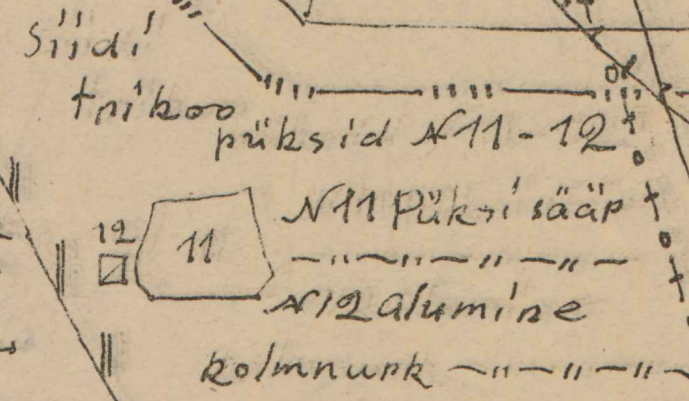 siidi
trikoo
püksid N11-12
N11 Püksi sääp
12
11
N12 alumine
kolmnurk